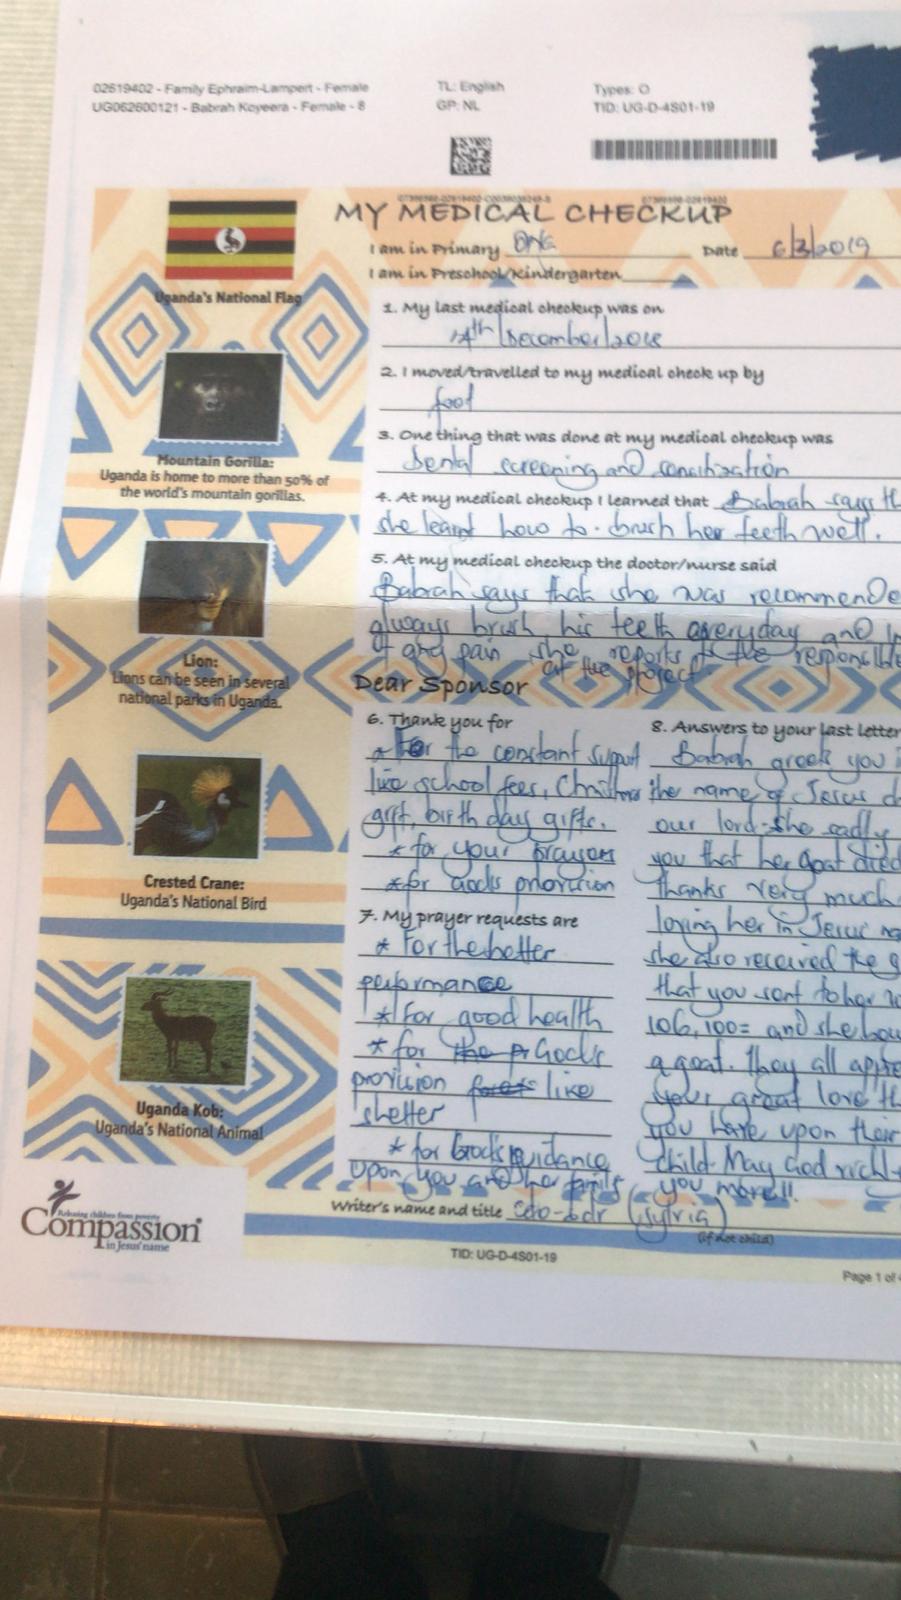 02619402 - Family Ephraim-Lampert - Female
UG062600121 - Babrah Koyeera - Female - 8
TL: English
GP: NL
Types: O
TID: UG-D-4S01-19
MY MEDICAL CHECKUP
I am in Primary One Date 6/3/2019
I am in Preschool/Kindergarten
Uganda's National Flag
Mountain Gorilla:
Uganda is home to more than 50% of
the world's mountain gorillas.
Lion:
Lions can be seen in several
national parks in Uganda.
Crested Crane:
Uganda's National Bird
Uganda Kob:
Uganda's National Animal
1. My last medical checkup was on
December/2018
2. I moved/travelled to my medical check up by
foot
3. One thing that was done at my medical checkup was
Dental screening and
4. At my medical checkup I learned that Babrah says th
she learnt how to brush her teeth well.
5. At my medical checkup the doctor/nurse said
Babrah says that she was recommende
always brush his teeth everyday and
of any pain she reports to the responsible
at the project.
Dear Sponsor
6. Thank you for
* For the constant support
like school fees, Christmas
gift, birth day gifts.
* for your prayers
* for Gods provision
7. My prayer requests are
* For the better
performance
* For good health
* for God's
provision like
shelter
* for God's guidance
upon you and her family
8. Answers to your last letter
Babrah greets you i
the name of Jesus
our lord. She sadly
you that her goat died
thanks very much
loving her in Jesus na
she also received the g
that you sent to her
106,100= and she bou
a goat. They all appre
your great love th
you have upon their
child. May God richl
you more!!
Writer's name and title cdo-bdr (Sylvia)
(if not child)
Releasing children from poverty
Compassion®
in Jesus' name
TID: UG-D-4S01-19
Page 1 of